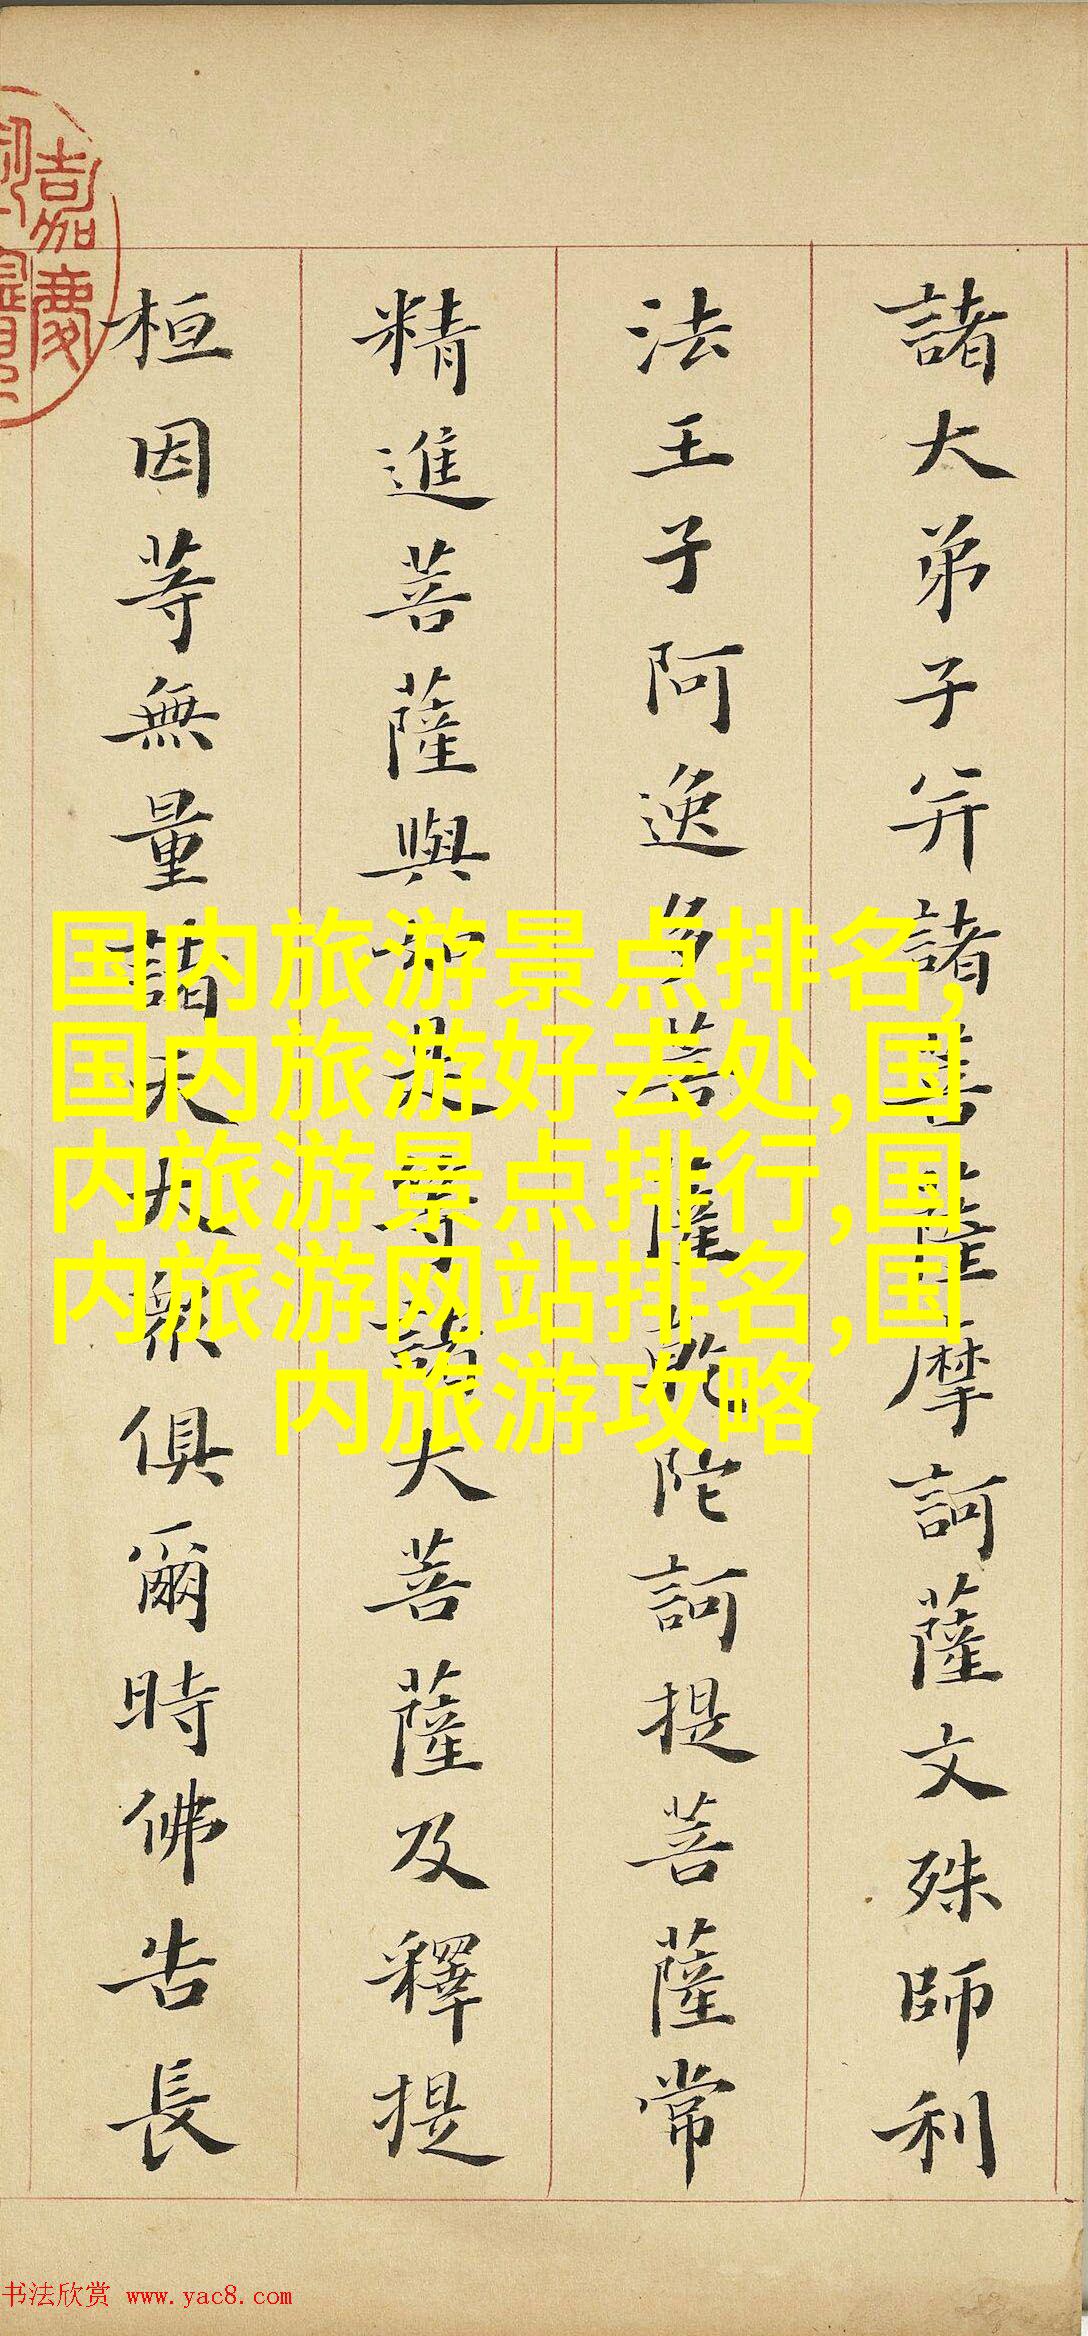 諸大弟子并諸菩薩摩訶薩文殊師利
法王子阿逸多菩薩乾陀訶提菩薩常
精進菩薩與如是等諸大菩薩及釋提
桓因等無量諸天大眾俱爾時佛告長
嘉慶
国内旅游景点排名,
国内旅游好去处,国
内旅游景点排行,国
内旅游网站排名,国
内旅游攻略
书法欣赏 www.yac8.com